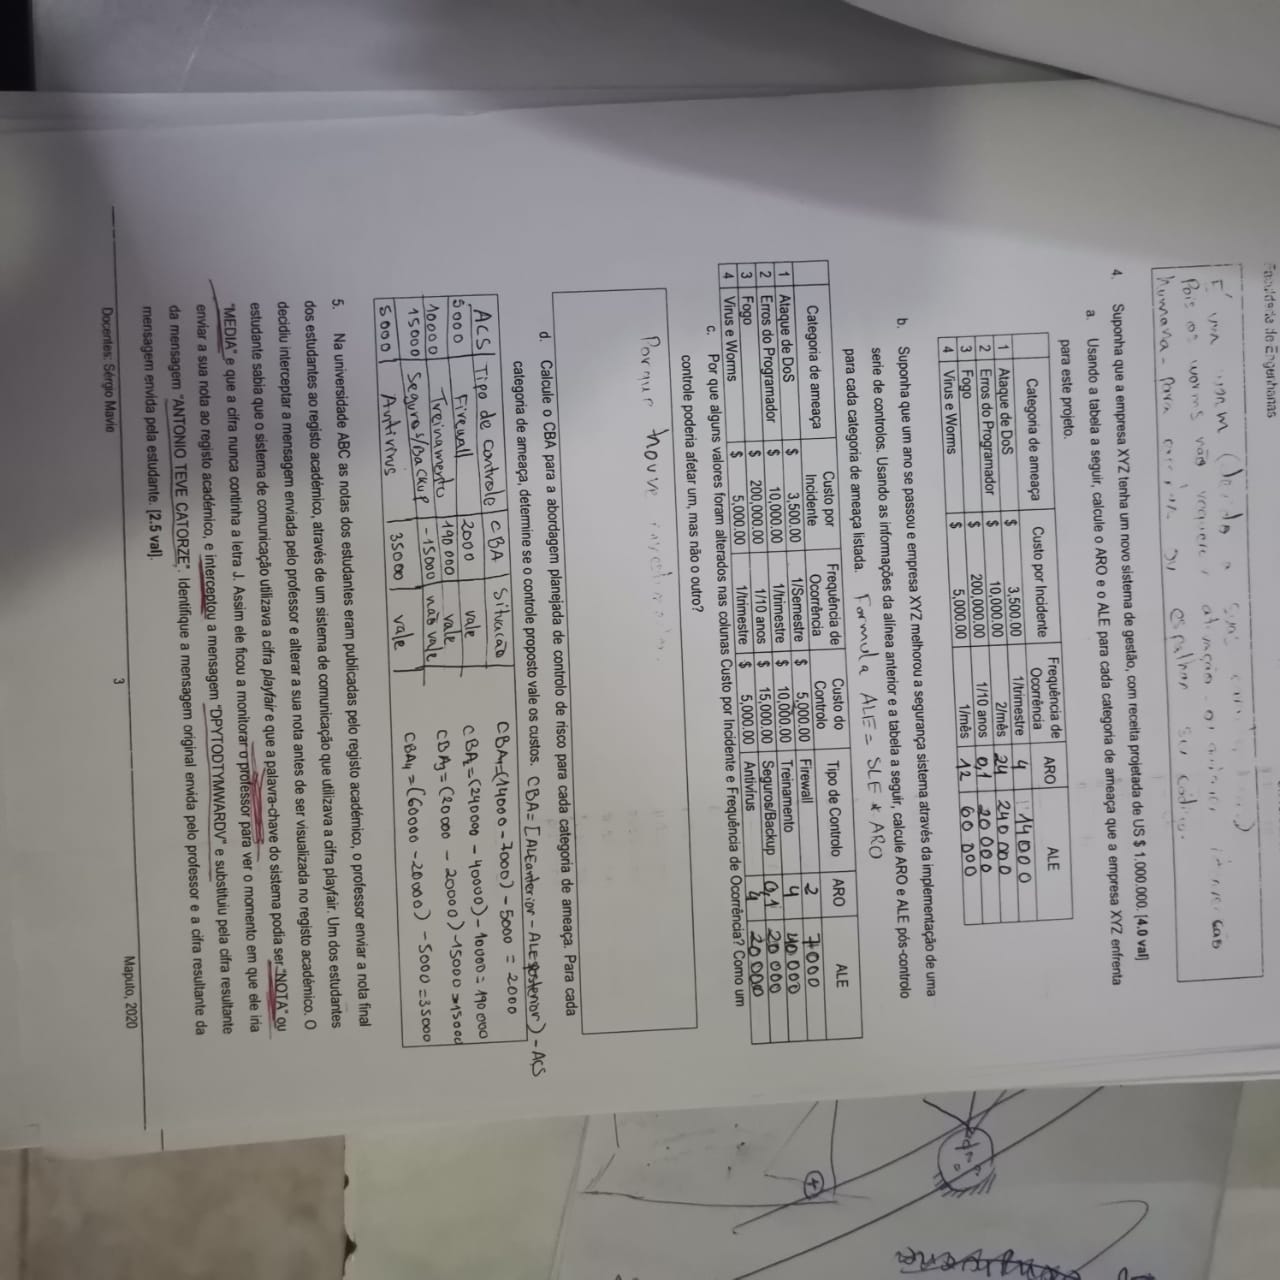 Faculdade de Engenharias
É um worm
Pois os worms não
humana para ou espalhar seu código.
4. Suponha que a empresa XYZ tenha um novo sistema de gestão, com receita projetada de US $ 1.000.000. [4.0 val]
a. Usando a tabela a seguir, calcule o ARO e o ALE para cada categoria de ameaça que a empresa XYZ enfrenta
para este projeto.
Categoria de ameaça Custo por Incidente Frequência de Ocorrência ARO ALE
1 Ataque de DoS $ 3,500.00 1/trimestre 4 14000
2 Erros do Programador $ 10,000.00 2/mês 24 240 000
3 Fogo $ 200,000.00 1/10 anos 0,1 20 000
4 Virus e Worms $ 5,000.00 1/mês 12 60 000
b. Suponha que um ano se passou e empresa XYZ melhorou a segurança sistema através da implementação de uma
serie de controlos. Usando as informações da alínea anterior e a tabela a seguir, calcule ARO e ALE pós-controlo
para cada categoria de ameaça listada. Formula ALE = SLE * ARO
Categoria de ameaça Custo por Incidente Frequência de Ocorrência Custo do Controlo Tipo de Controlo ARO ALE
1 Ataque de DoS $ 3,500.00 1/Semestre $ 5,000.00 Firewall 2 7000
2 Erros do Programador $ 10,000.00 1/trimestre $ 10,000.00 Treinamento 4 40 000
3 Fogo $ 200,000.00 1/10 anos $ 15,000.00 Seguros/Backup 0,1 20 000
4 Virus e Worms $ 5,000.00 1/trimestre $ 5,000.00 Antivírus 4 20000
c. Por que alguns valores foram alterados nas colunas Custo por Incidente e Frequência de Ocorrência? Como um
controle poderia afetar um, mas não o outro?
Porque houve
d. Calcule o CBA para a abordagem planejada de controlo de risco para cada categoria de ameaça. Para cada
categoria de ameaça, determine se o controle proposto vale os custos. CBA = [ALEanterior - ALEposterior) - ACS
ACS Tipo de controle CBA Situação
5000 Firewall 2000 vale
10000 Treinamento 190 000 vale
15000 Seguros/Backup -15000 não vale
5000 Antivírus 35000 vale
CBA1=(14000 - 7000) - 5000 = 2000
CBA2=(240000 - 40000) - 10000 = 190 000
CBA3=(20000 - 20000) -15000 =-15000
CBA4=(60000 -20000) - 5000 = 35000
5. Na universidade ABC as notas dos estudantes eram publicadas pelo registo académico, o professor enviar a nota final
dos estudantes ao registo académico, através de um sistema de comunicação que utilizava a cifra playfair. Um dos estudantes
decidiu interceptar a mensagem enviada pelo professor e alterar a sua nota antes de ser visualizada no registo académico. O
estudante sabia que o sistema de comunicação utilizava a cifra playfair e que a palavra-chave do sistema podia ser "NOTA" ou
"MEDIA" e que a cifra nunca continha a letra J. Assim ele ficou a monitorar o professor para ver o momento em que ele iria
enviar a sua nota ao registo académico, e interceptou a mensagem "DPYTODTYMWARDV" e substituiu pela cifra resultante
da mensagem "ANTONIO TEVE CATORZE". Identifique a mensagem original envida pelo professor e a cifra resultante da
mensagem envida pela estudante. [2.5 val].
Docentes: Sérgio Mavie
3
Maputo, 2020